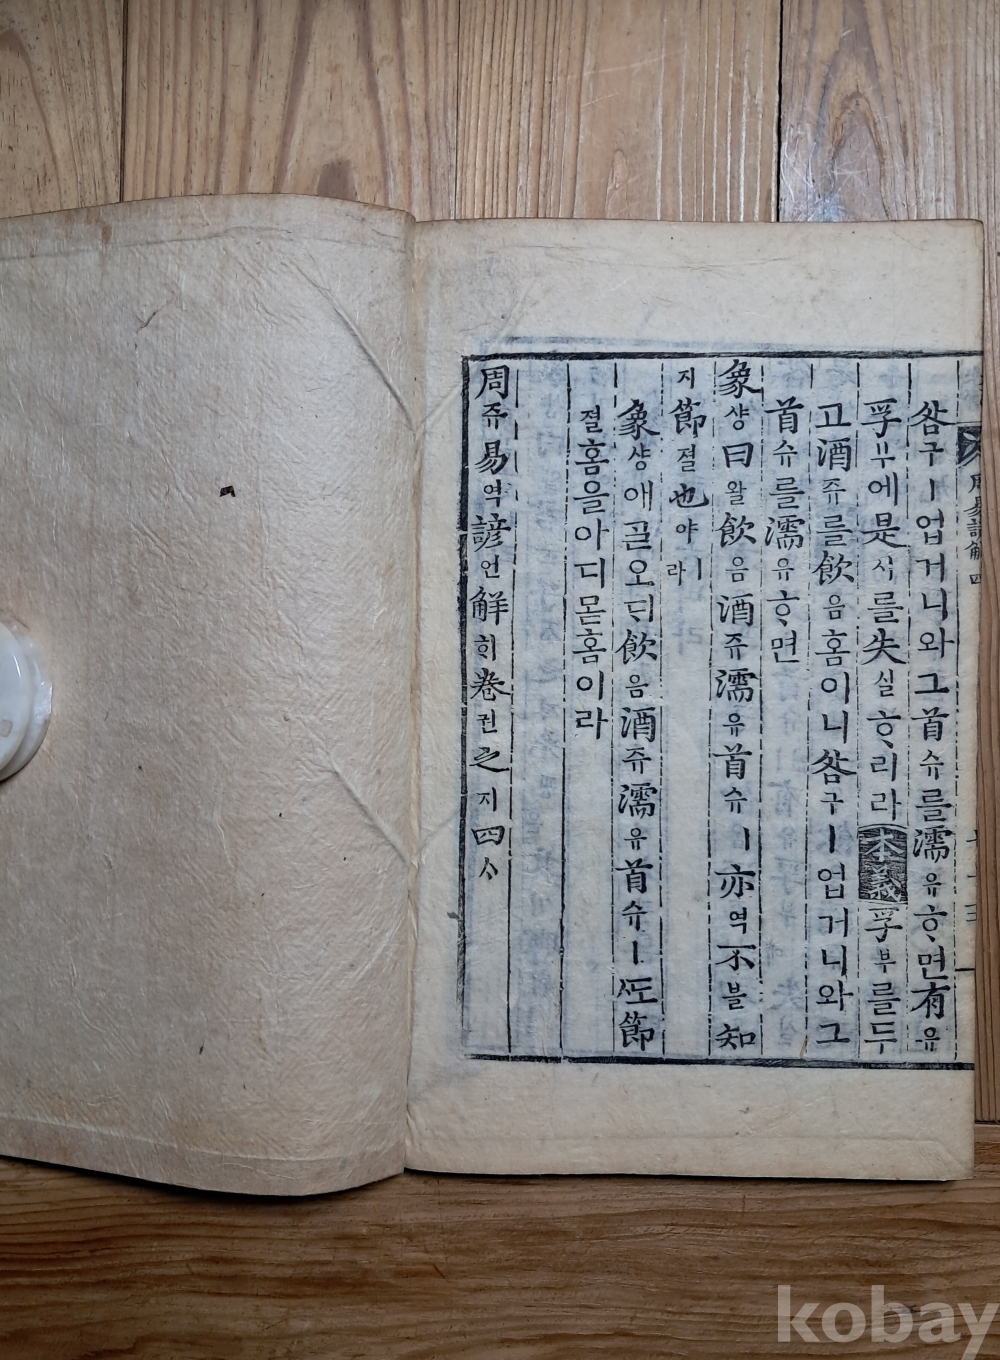 咎구ㅣ업거니와그首슈를濡유ᄒᆞ면有유
孚부에是시를失실ᄒᆞ리라本義孚부를두
고酒쥬를飮음홈이니咎구ㅣ업거니와그
首슈를濡유ᄒᆞ면
象샹曰왈飮음酒쥬濡유首슈ㅣ亦역不블知
지節졀也야ㅣ라
象샹애ᄀᆞᆯ오ᄃᆡ飮음酒쥬濡유首슈ㅣᄯᅩ節
졀홈을아디몯홈이라
周쥬易역諺언解ᄒᆡ卷권之지四ᄉᆞ
周易諺解 四
kobay